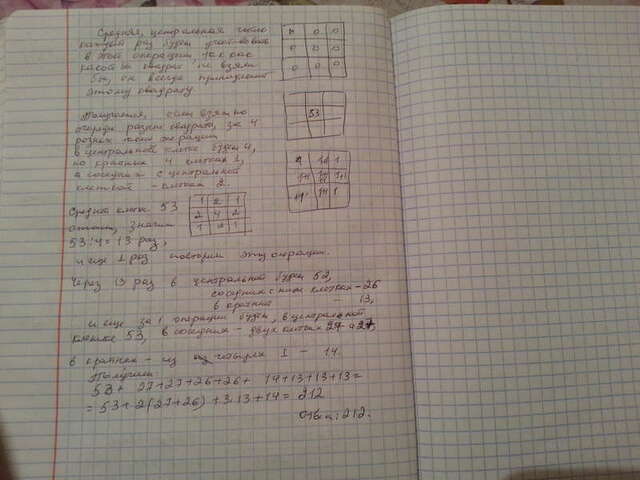 Средняя, центральная число
каждый раз будет участвовать
в этой операции, т.к. как
какой бы квадрат не взяли
бы, он всегда принадлежит
этому квадрату.
0 0 0
0 0 0
0 0 0
Получается, если взять по
очереди разные квадраты, за 4
разных таких операции
в центральной клетке будет 4,
по крайних 4 клетках 1,
а соседних с центральной
клеткой - клетках 2.
53
1 2 1
2 4 2
1 2 1
Средней клетке 53
значит
53:4 = 13 раз,
и еще 1 раз повторим эту операцию.
Через 13 раз в центральной будет 52,
соседних с ним клетках - 26
в крайних 13,
и еще за 1 операцию будет, в центральной
клетке 53, в соседних - двух клетках 27
в крайних - из четырех 1 - 14.
Получим:
53 + 27+27+26+26+ 14+13+13+13=
= 53+2(27+26)+3·13+14= 212
Ответ: 212.